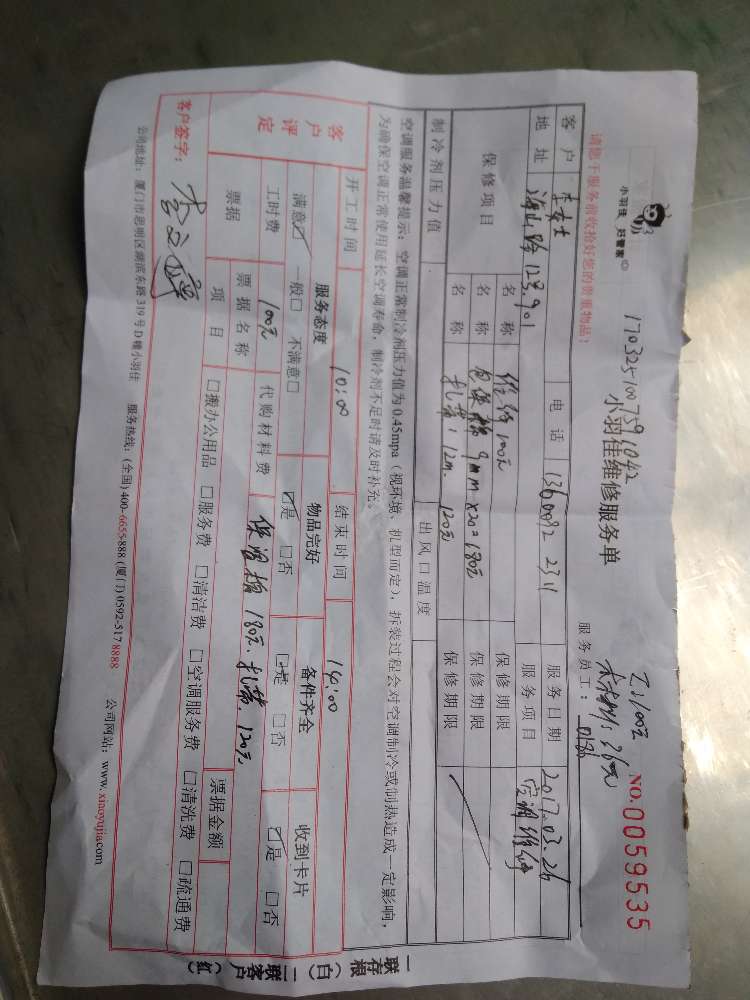 小羽佳 好管家
1703251007391042
小羽佳维修服务单
工:100元
材料:360元
NO.0059535
请您于服务前收拾好您的贵重物品!
服务员工:
客户 李女士 电话 1360092 2311 服务日期 2017.03.26
地址 海山路 123.901 服务项目 空调维修
保修项目 名称 维修100元 保修期限
名称 9mm×20=180元 保修期限
名称 扎带:12m. 120元 保修期限
制冷剂压力值 出风口温度
空调服务温馨提示:空调正常制冷剂压力值为0.45mpa(视环境、机型而定),拆装过程会对空调制冷或制热造成一定影响,
为确保空调正常使用延长空调寿命,制冷剂不足时请及时补充。
开工时间 10:00 结束时间 14:00
客户评定 服务态度 物品完好 备件齐全 收到卡片
满意☑ 一般□ 不满意□ ☑是 □否 ☑是 □否 ☑是 □否
工时费 100元 代购材料费 保温棉180元.扎带.120元
票据 票据名称 票据金额
项目 □搬办公用品 □服务费 □清洁费 □空调服务费 □清洗费 □疏通费
客户签字:
公司地址:厦门市思明区湖滨东路319号D幢小羽佳 服务热线:(全国)400-6655-888 (厦门)0592-5178888 公司网站:www.xiaoyujia.com
一联存根(白) 一联客户(红)